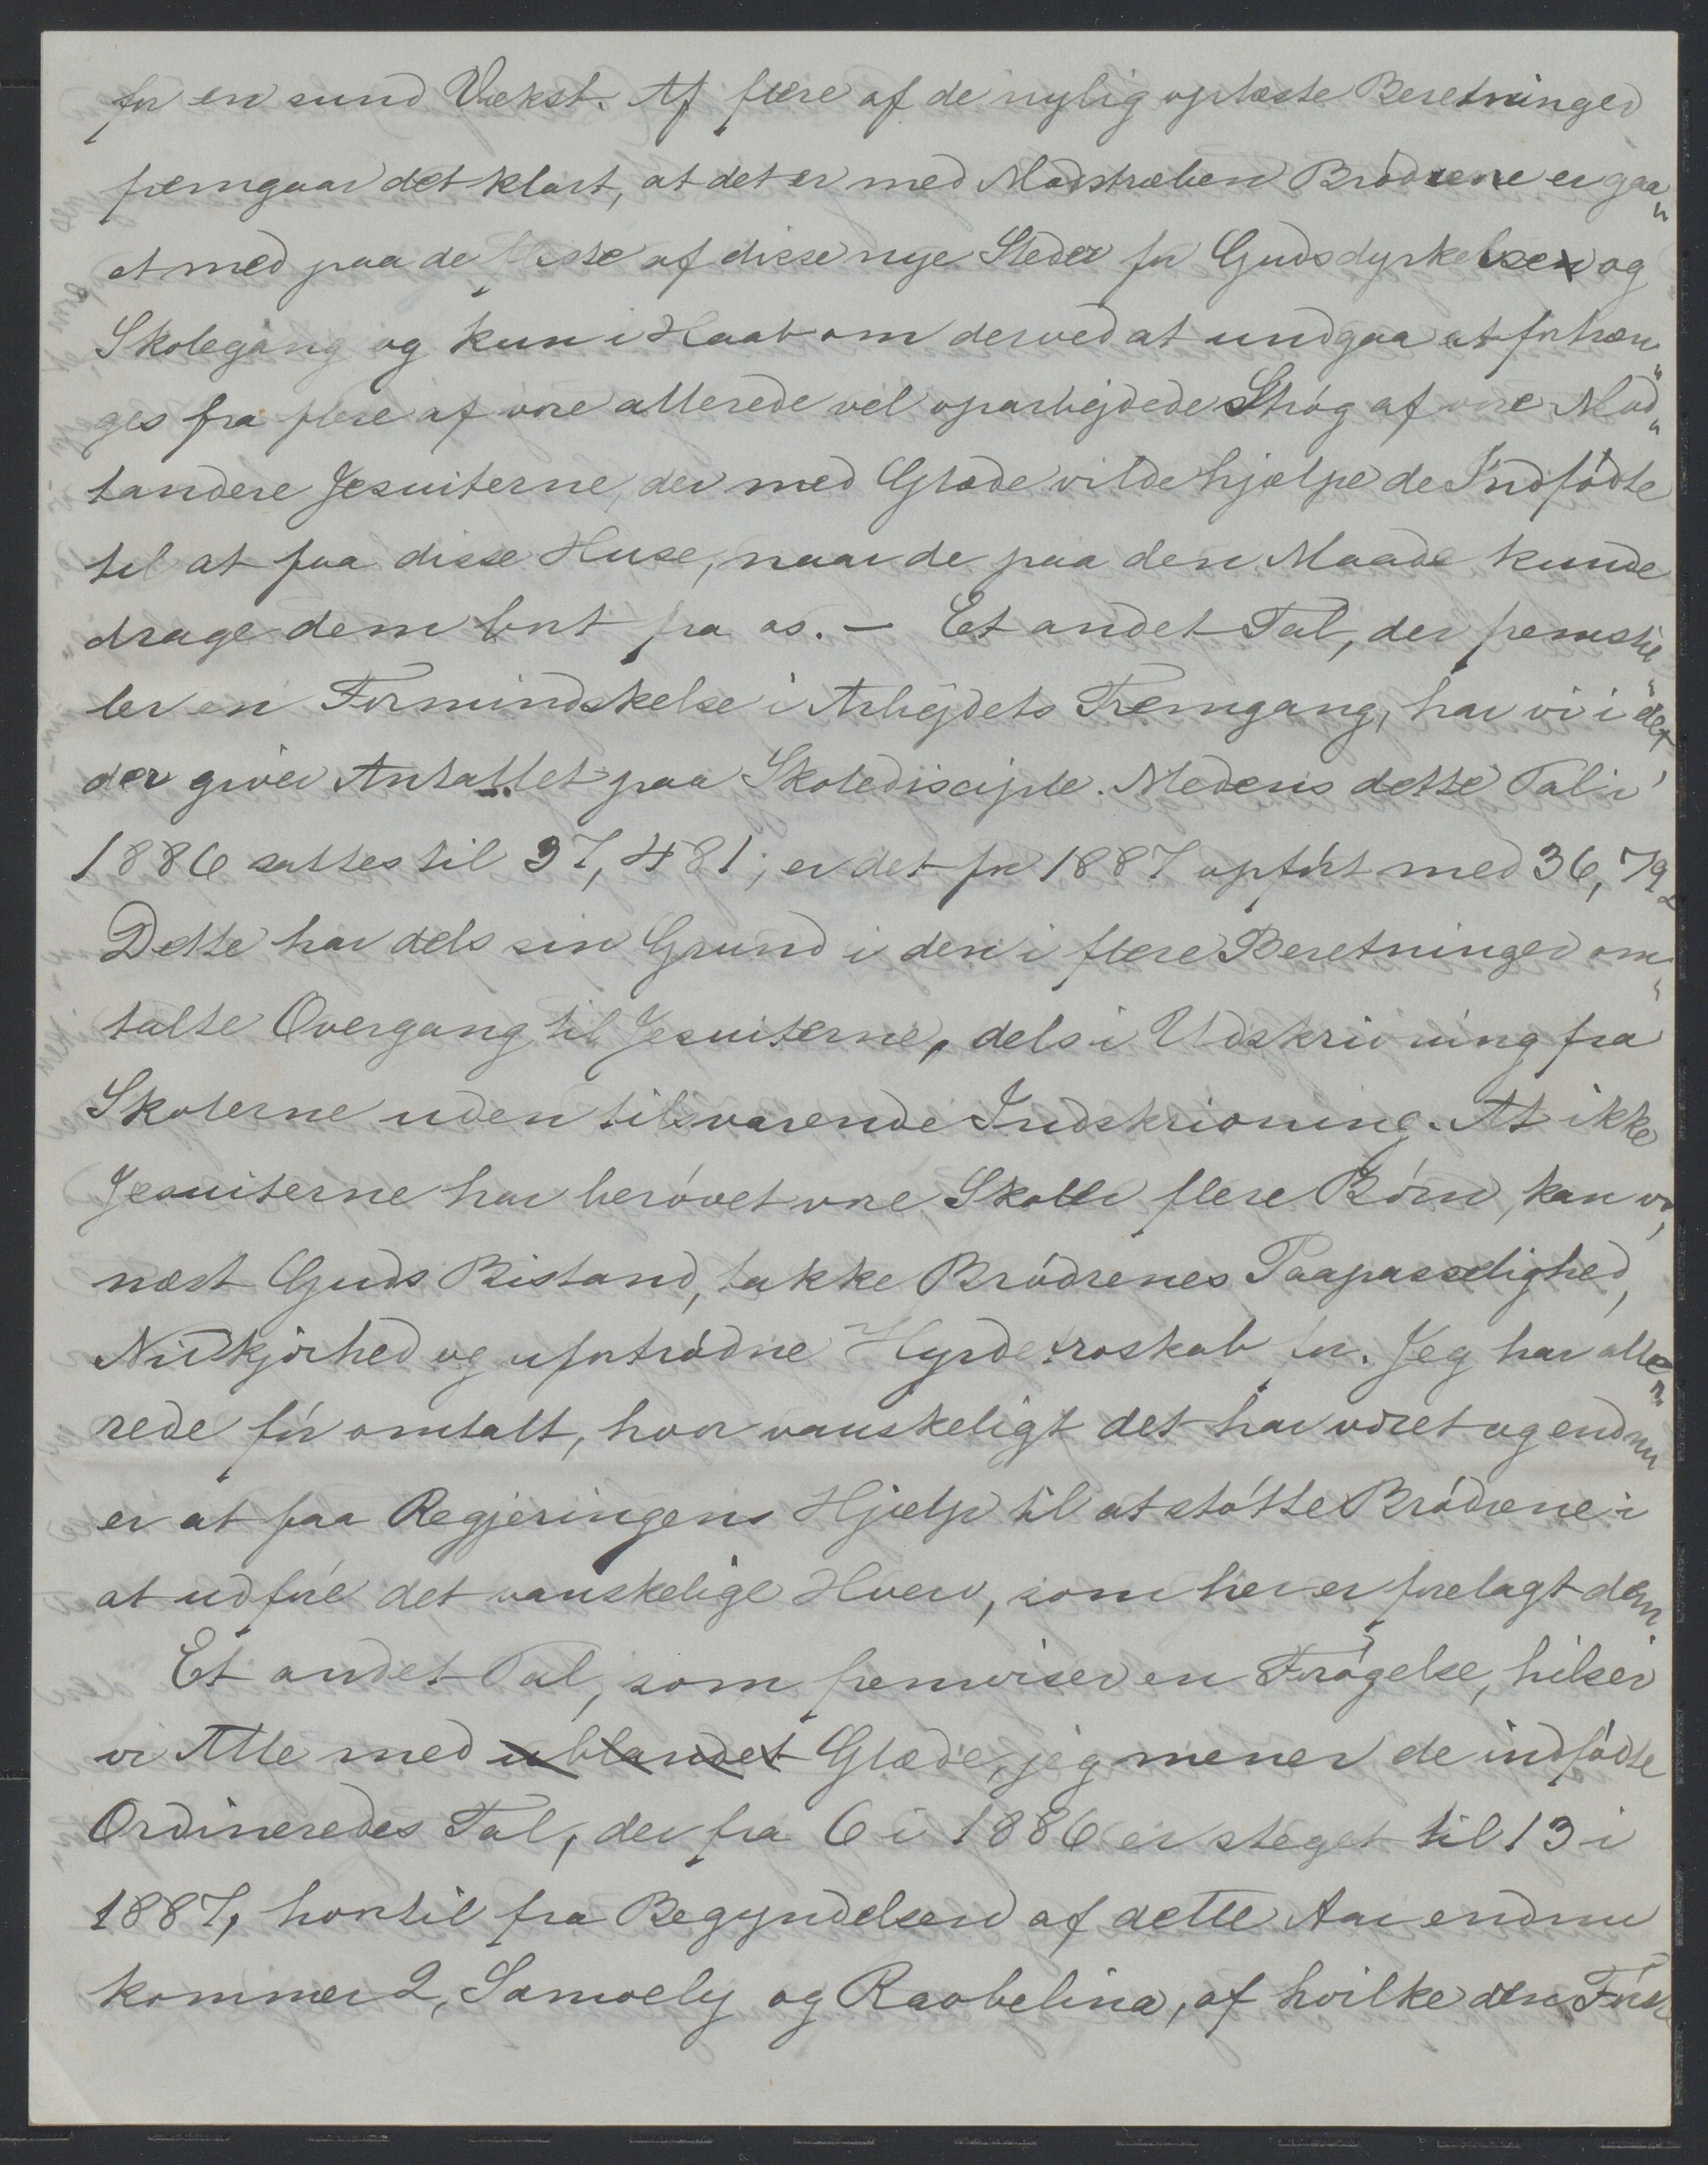 for en sund Vækst. Af flere af de nylig oplæste Beretninger
fremgaar det klart, at det er med Modstræben Brødrene er gaa„
et med paa de fleste af disse nye Steder for Gudsdyrkelsen og
Skolegang og kun i Haab om derved at undgaa at fortræn„
ges fra flere af vore allerede vel oparbejdede Strøg af vore Mod„
standere Jesuiterne, der med Glæde vilde hjælpe de Indfødte
til at faa disse Huse, naar de paa den Maade kunde
drage dem bort fra os. – Et andet Tal, der fremstil„
ler en Formindskelse i Arbejdets Fremgang, har vi i det,
der giver Antallet paa Skoledisciple. Medens dette Tal i
1886 sattes til 37,481, er det for 1887 opført med 36,792
Dette har dels sin Grund i den i flere Beretninger om„
talte Overgang til Jesuiterne, dels i Udskrivning fra
Skolerne uden tilsvarende Indskrivning. At ikke
Jesuiterne har berøvet vore Skoler flere Børn, kan vi,
næst Guds Bistand, takke Brødrenes Paapasselighed,
Nidkjærhed og ufortrødne Hyrdetroskab for. Jeg har alle„
rede før omtalt, hvor vanskeligt det har været og endnu
er at faa Regjeringens Hjælp til at støtte Brødrene i
at udføre det vanskelige Hverv, som her er forelagt dem
Et andet Tal, som fremviser en Forøgelse, hilser
vi Alle med ublandet Glæde, jeg mener de indfødte
Ordineredes Tal, der fra 6 i 1886 er steget til 13 i
1887, hvortil fra Begyndelsen af dette Aar endnu
kommer 2, Samoely og Raobelina, af hvilke den Første